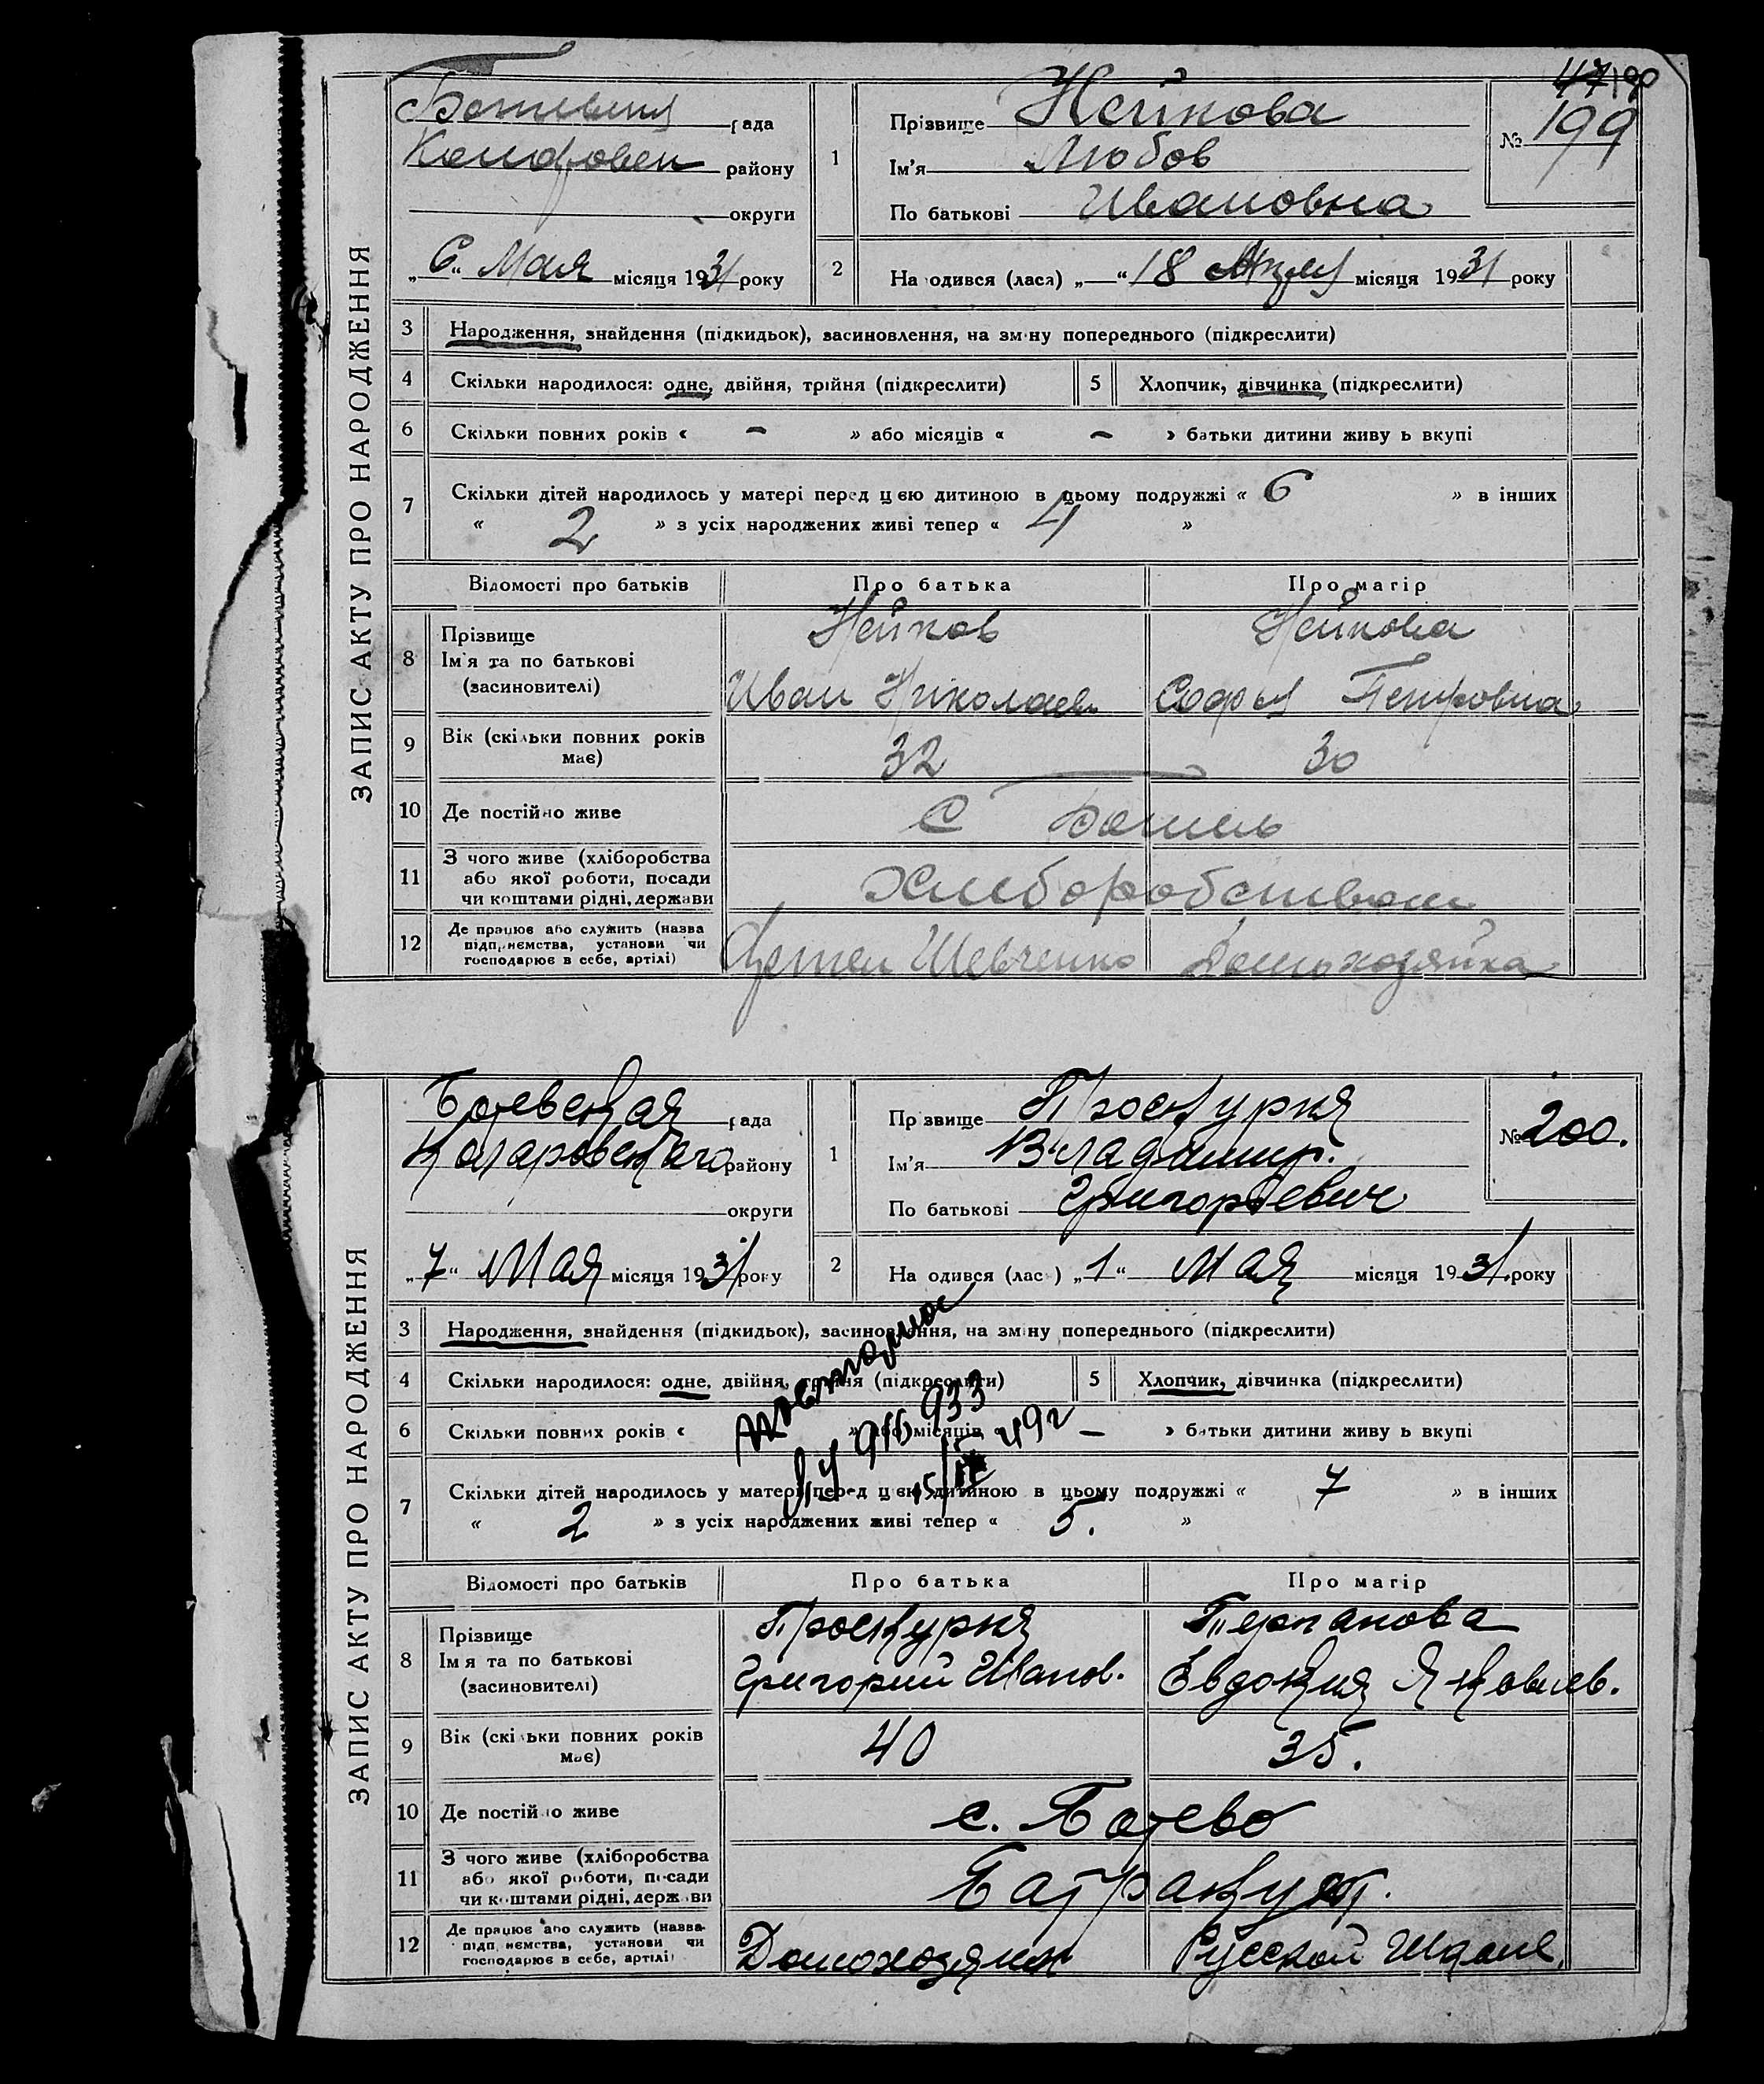 ЗАПИС АКТУ ПРО НАРОДЖЕННЯ
рада
району
округи
"6" Мая місяця 1931 року
1
Прізвище Нейкова
Ім'я Любов
По батькові Ивановна
№ 199
2 На одився (лася) „ " 18 місяця 1931 року
3 Народження, знайдення (підкидьок), засиновлення, на зм ну попереднього (підкреслити)
4 Скільки народилося: одне, двійня, трійня (підкреслити) 5 Хлопчик, дівчинка (підкреслити)
6 Скільки повних років « – » або місяців « – » батьки дитини живу ь вкупі
7 Скільки дітей народилось у матері перед ц ею дитиною в цьому подружжі « 6 » в інших
« 2 » з усіх народжених живі тепер « 4 »
Відомості про батьків Про батька Про матір
8 Прізвище Нейков Нейкова
Ім'я та по батькові
(засиновителі) Иван Николаев Софья Петровна
9 Вік (скільки повних років має) 32 30
10 Де постійно живе С
11 З чого живе (хліборобства
або якої роботи, посади
чи коштами рідні, держави
12 Де працює або служить (назва
підприємства, установи чи
господарює в себе, артілі) Шевченко Домохозяйка
ЗАПИС АКТУ ПРО НАРОДЖЕННЯ
Ботевская рада
Коларовского району
округи
"7" Мая місяця 1931 року
1
Пр звище Проскурня
Ім'я Владимир.
По батькові Григорьевич
№ 200.
2 На одився (лас ) „1" Мая місяця 1931. року
3 Народження, знайдення (підкидьок), засиновлення, на зміну попереднього (підкреслити)
4 Скільки народилося: одне, двійня, трійня (підкреслити) 5 Хлопчик, дівчинка (підкреслити)
6 Скільки повних років « » або місяців « – » батьки дитини живу ь вкупі
933
49г
7 Скільки дітей народилось у матері перед ц ею дитиною в цьому подружжі « 7 » в інших
« 2 » з усіх народжених живі тепер « 5. »
Відомості про батьків Про батька Про матір
8 Прізвище Проскурня Терпанова
Ім я та по батькові
(засиновителі) Григорий Иванов. Евдокия Яковлев.
9 Вік (скі ьки повних років має) 40 35.
10 Де постій о живе с. Ботево
11 З чого живе (хліборобства
або якої роботи, посади
чи коштами рідні, держави Батракует.
12 Де працює або служить (назва
підп иємства, установи чи
господарює в себе, артілі) Домохозяин Русской Школе.